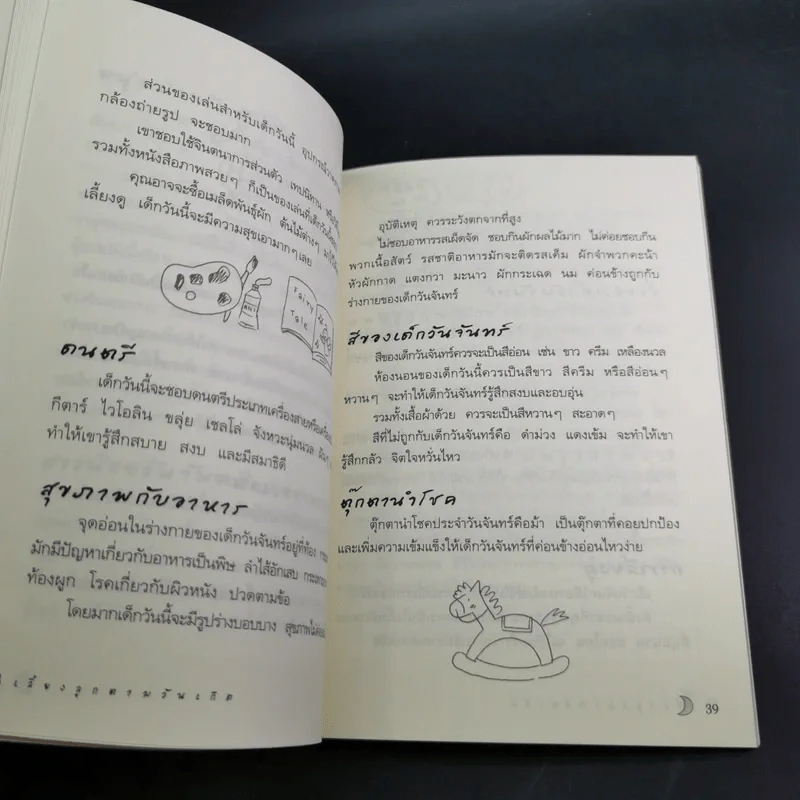 ส่วนของเล่นสำหรับเด็กวันนี้ อุปกรณ์วาด
กล้องถ่ายรูป จะชอบมาก
เขาชอบใช้จินตนาการส่วนตัว เทปนิทาน
รวมทั้งหนังสือภาพสวยๆ ก็เป็นของเล่นที่เด็กวันนี้
คุณอาจจะซื้อเมล็ดพันธุ์ผัก ต้นไม้ต่างๆ
เลี้ยงดู เด็กวันนี้จะมีความสุขเอามากๆ เลย
Fairy
Tale
ดนตรี
เด็กวันนี้จะชอบดนตรีประเภทเครื่องสายหรือ
กีตาร์ ไวโอลิน ขลุ่ย เชลโล่ จังหวะนุ่มนวล
ทำให้เขารู้สึกสบาย สงบ และมีสมาธิดี
สุขภาพกับอาหาร
จุดอ่อนในร่างกายของเด็กวันจันทร์อยู่ที่ท้อง
มักมีปัญหาเกี่ยวกับอาหารเป็นพิษ ลำไส้อักเสบ
ท้องผูก โรคเกี่ยวกับผิวหนัง ปวดตามข้อ
โดยมากเด็กวันนี้จะมีรูปร่างบอบบาง สุขภาพไม่ค่อย
เลี้ยงลูกตามวันเกิด
อุบัติเหตุ ควรระวังตกจากที่สูง
ไม่ชอบอาหารรสเผ็ดจัด ชอบกินผักผลไม้มาก ไม่ค่อยชอบกิน
พวกเนื้อสัตว์ รสชาติอาหารมักจะติดรสเค็ม ผักจำพวกคะน้า
หัวผักกาด แตงกวา มะนาว ผักกระเฉด นม ค่อนข้างถูกกับ
ร่างกายของเด็กวันจันทร์
สีของเด็กวันจันทร์
สีของเด็กวันจันทร์ควรจะเป็นสีอ่อน เช่น ขาว ครีม เหลืองนวล
ห้องนอนของเด็กวันนี้ควรเป็นสีขาว สีครีม หรือสีอ่อนๆ
หวานๆ จะทำให้เด็กวันจันทร์รู้สึกสงบและอบอุ่น
รวมทั้งเสื้อผ้าด้วย ควรจะเป็นสีหวานๆ สะอาดๆ
สีที่ไม่ถูกกับเด็กวันจันทร์คือ ดำม่วง แดงเข้ม จะทำให้เขา
รู้สึกกลัว จิตใจหวั่นไหว
ตุ๊กตานำโชค
ตุ๊กตานำโชคประจำวันจันทร์คือม้า เป็นตุ๊กตาที่คอยปกป้อง
และเพิ่มความเข้มแข็งให้เด็กวันจันทร์ที่ค่อนข้างอ่อนไหวง่าย
39